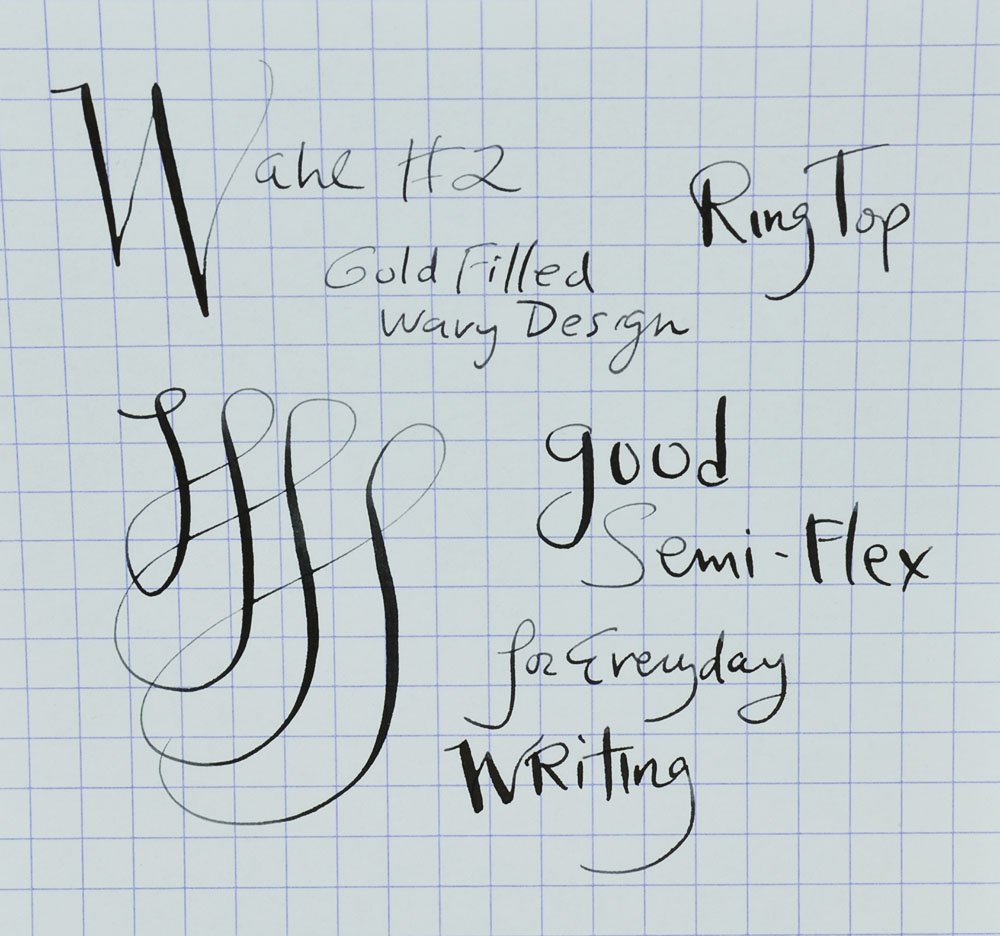 Wahl #2
Ring Top
Gold Filled
Wavy Design
good
Semi-Flex
for Everyday
Writing